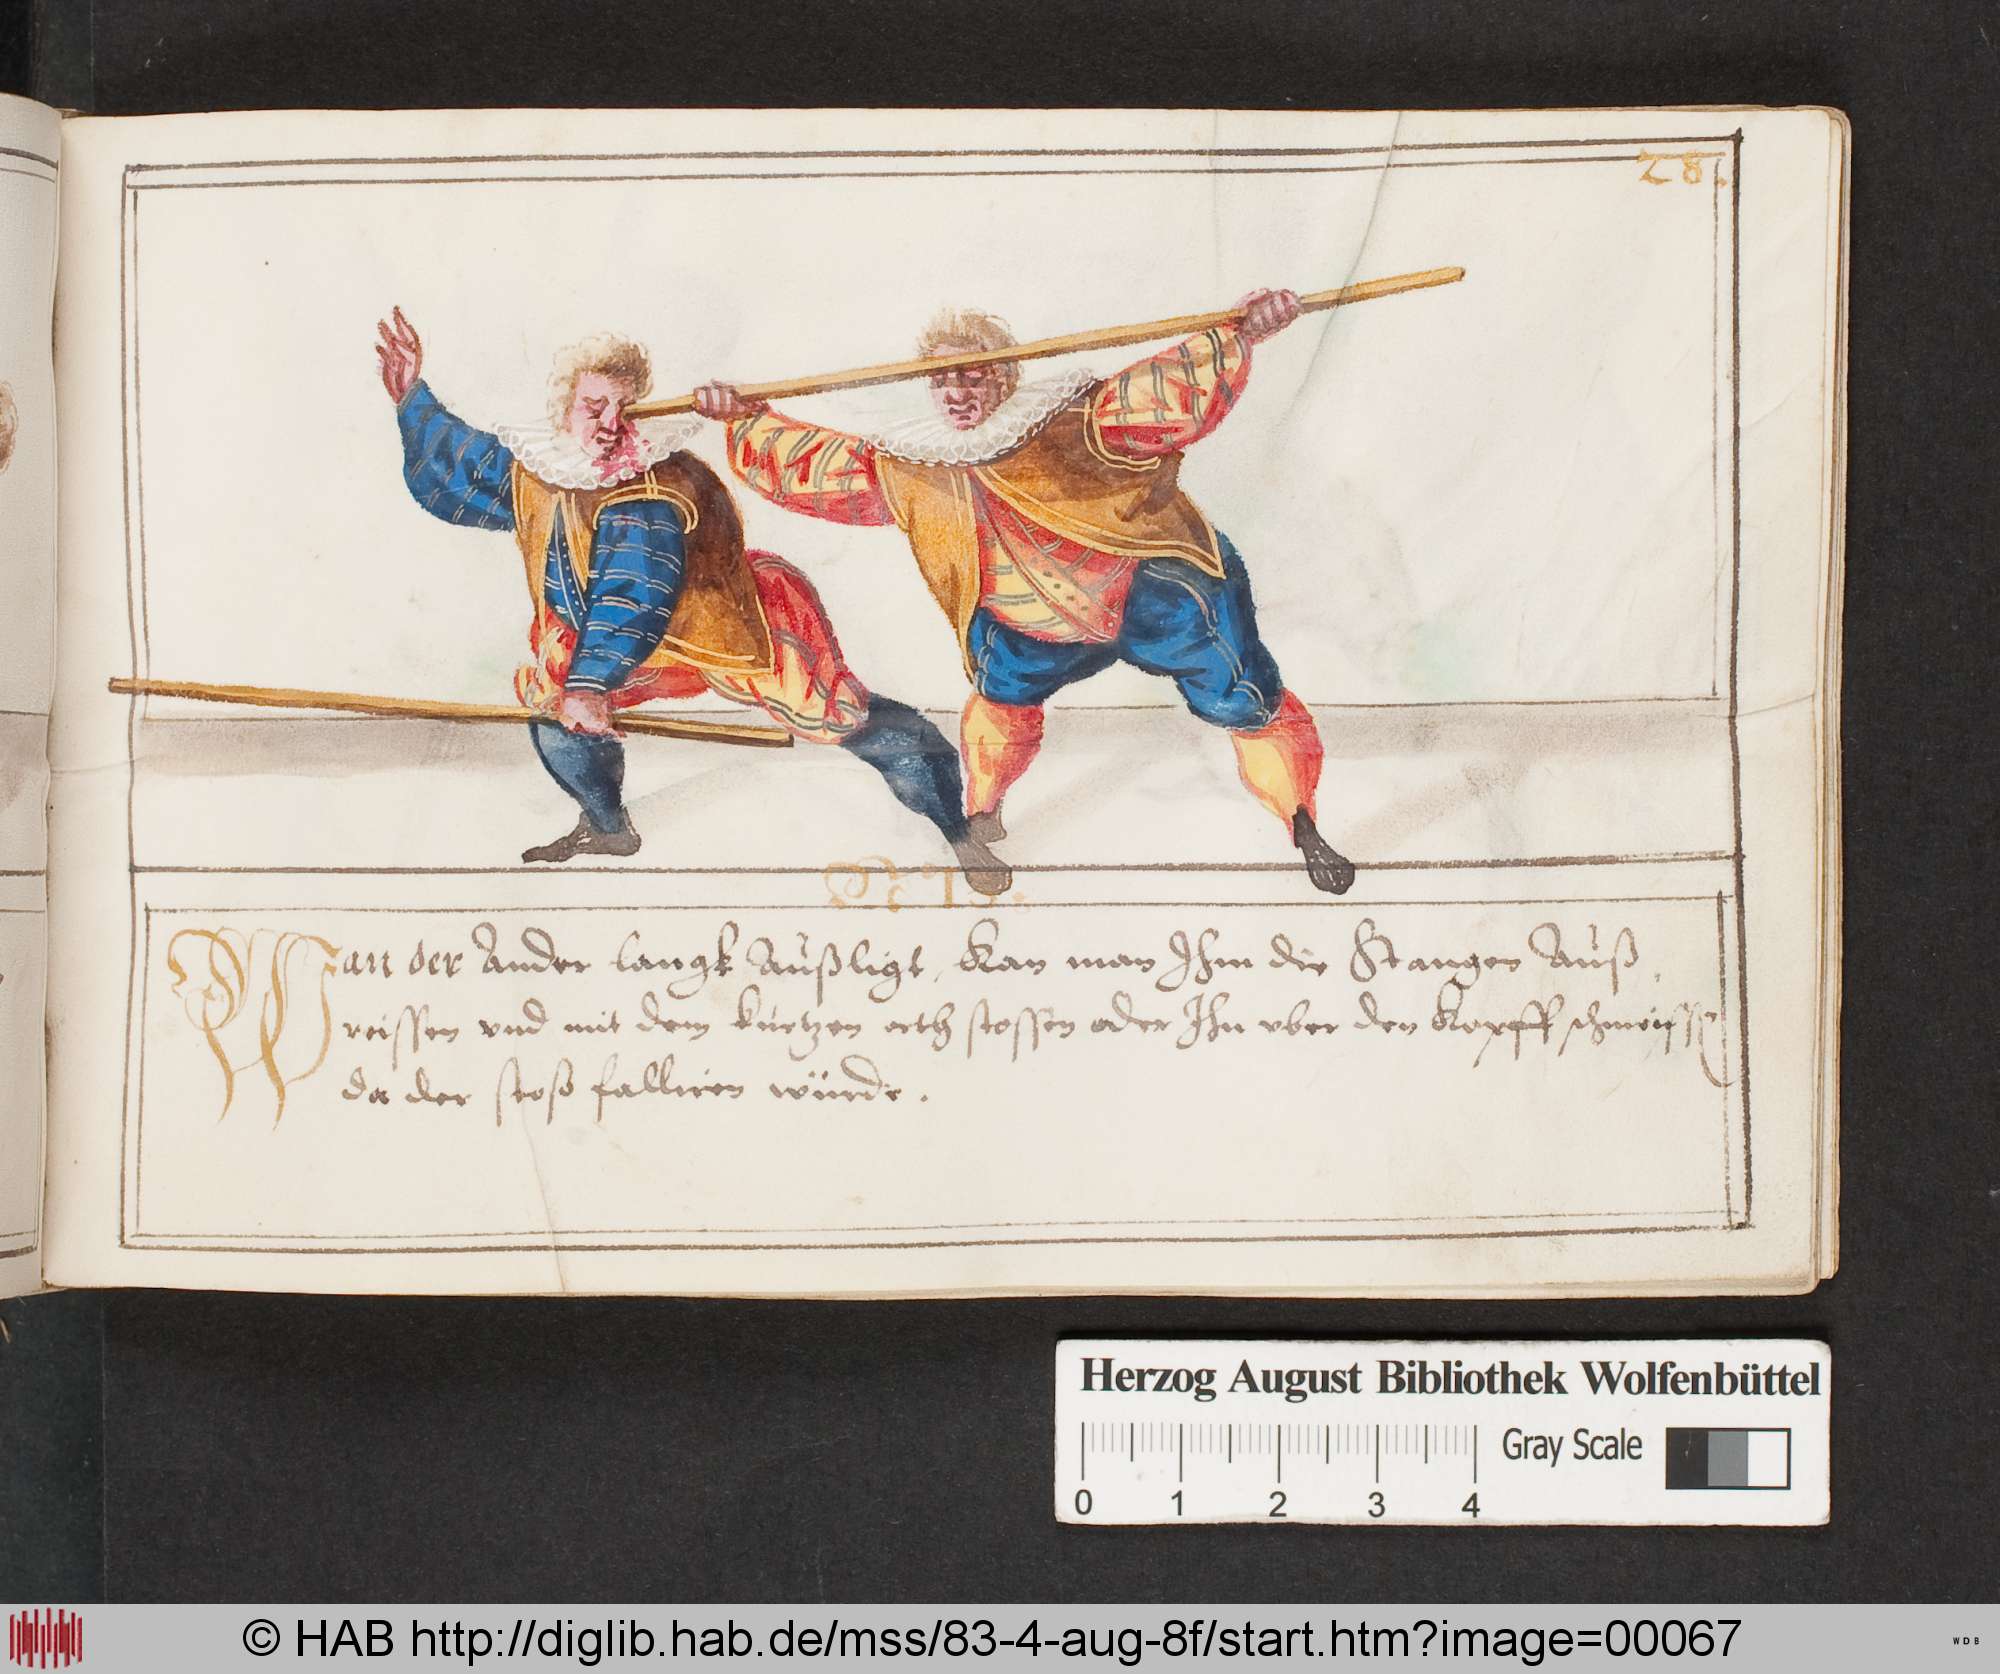 28.
Wan der Ander langk Außligt, Kan man Ihm die Stangen Auß
reissen vnd mit dem kurtzen orth stossen oder Ihn vber den Kopff schmeissen
da der stoß falliren würde.
Herzog August Bibliothek Wolfenbüttel
Gray Scale
0 1 2 3 4
© HAB http://diglib.hab.de/mss/83-4-aug-8f/start.htm?image=00067
WDB